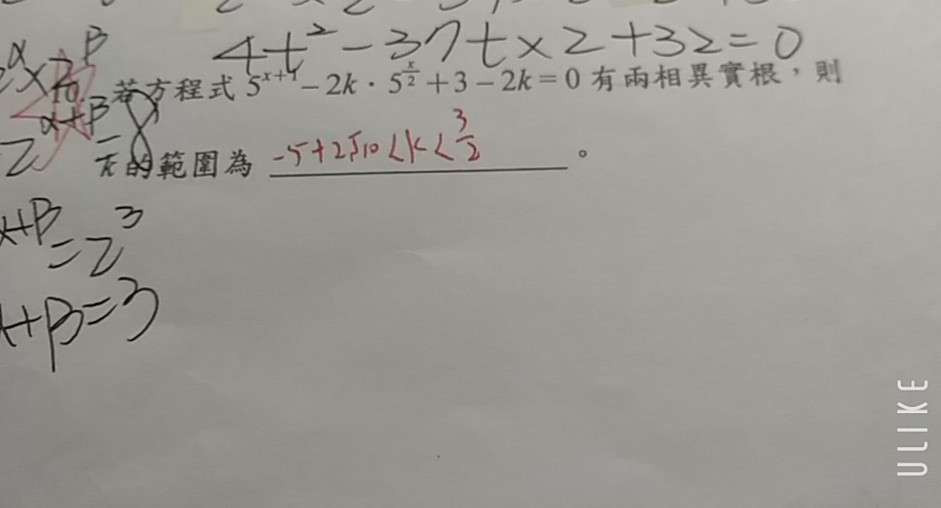 4t²-37t×2+32=0
若方程式 5^{x+1} - 2k · 5^{x/2} + 3 - 2k = 0 有兩相異實根,則
k的範圍為 -5+2√10<k<3/2 。
2^{α+β}=8
α+β=2³
α+β=3
ULIKE